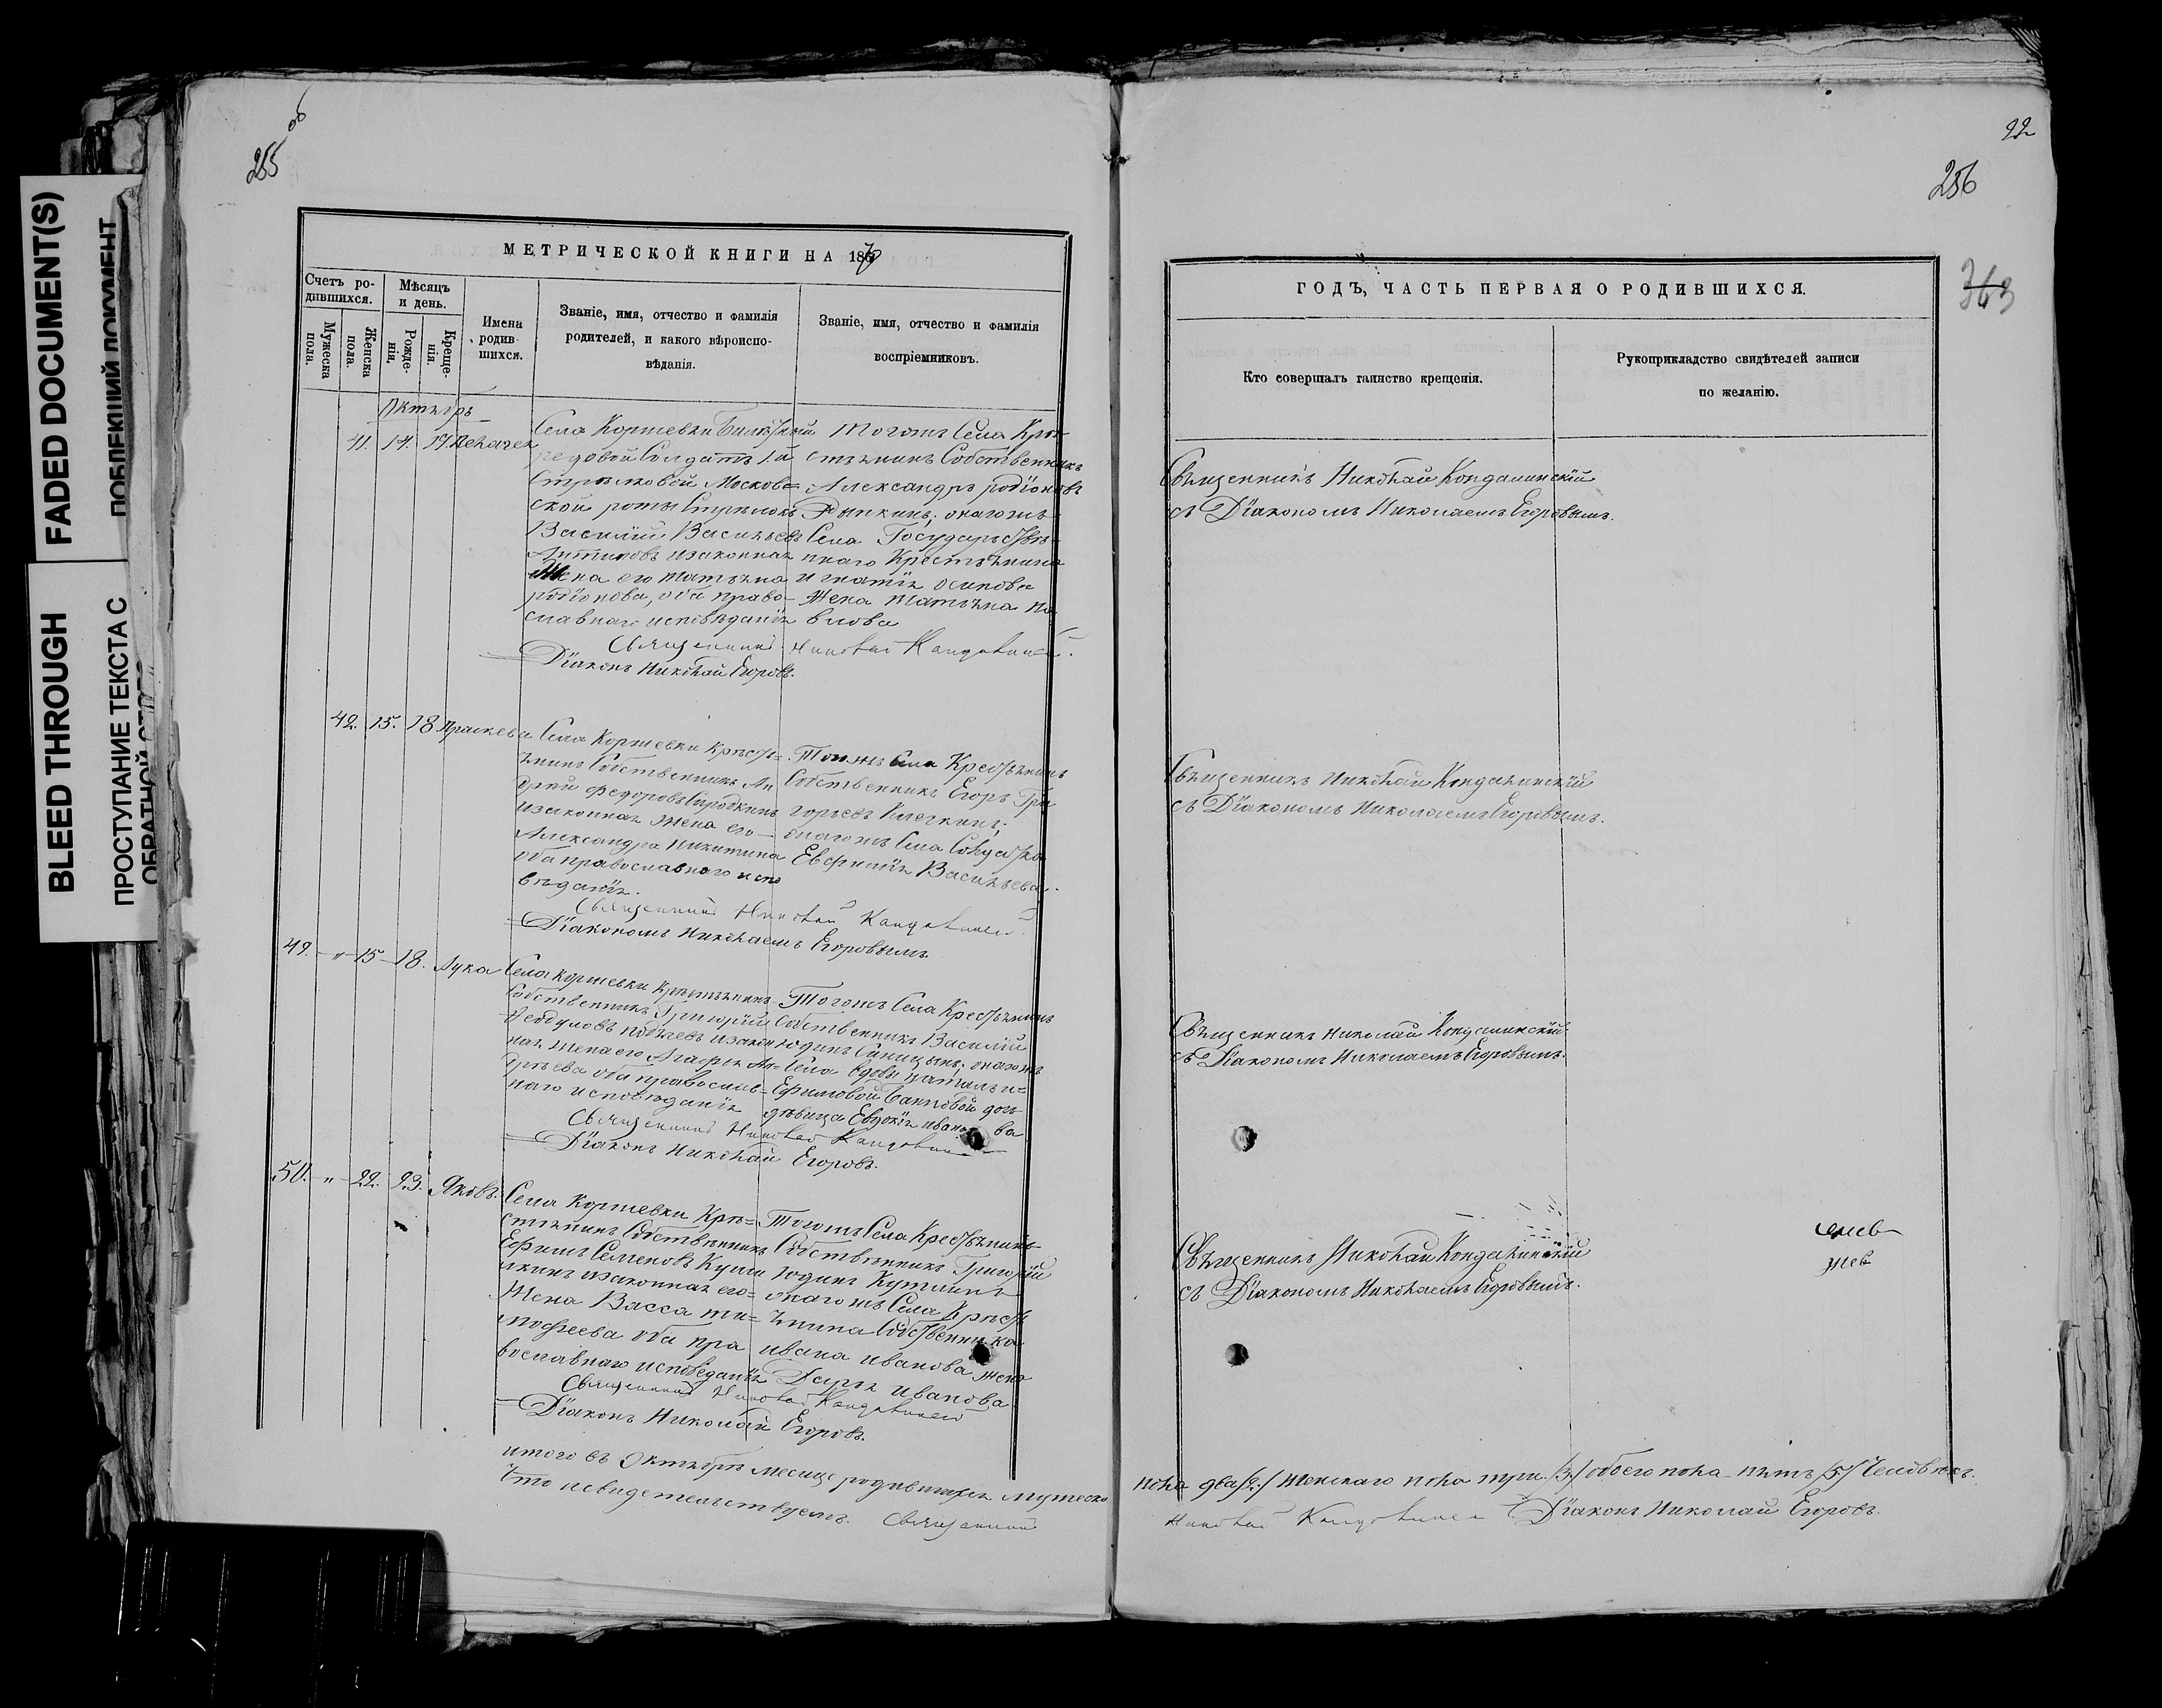 FADED DOCUMENT(S)
ПОБЛЕКШИЙ ДОКУМЕНТ
BLEED THROUGH
ПРОСТУПАНИЕ ТЕКСТА С
ОБРАТНОЙ
255
МЕТРИЧЕСКОЙ КНИГИ НА 1870
Счетъ ро-
дившихся.
Мужеска пола.
Женска пола.
Мѣсяцъ
и день.
Рожде-
нія.
Креще-
нія.
Имена
родив-
шихся.
Званіе, имя, отчество и фамилія
родителей, и какого вѣроиспо-
вѣданія.
Званіе, имя, отчество и фамилія
воспріемниковъ.
Октябрь
41. 14. 17. Пелагея
Села Коржевки
редовой Солдатъ 1й
Стрѣлковой Москов=
ской роты Стрѣлокъ
Василий Васильевъ
Антиповъ изаконная
Жена его татьяна
родіонова, оба право-
славнаго исповѣданія
Тогожъ Села Кре
стьянинъ Собственникъ
Александръ родіоновъ
онагожъ
Села Государствѣ-
ннаго Крестьянина
игнатія осипова
Жена татьяна па
влова
Священникъ Николай Кандалинскій.
Діаконъ Николай Егоровъ.
42. 15. 18 Праскева
Села Коржевки Крѣсть=
янинъ Собственникъ Ан
дрей федоровъ
изаконная Жена его
Александра Никитина
оба православнаго испо
вѣданія.
Тогожъ Села Крестьянинъ
Собственникъ Егоръ Гри
горьевъ Клечкинъ;
онагожъ Села Солдатка
Евфимія Васильева.
Священникъ Николай Кандалинскій
Діакономъ Николаемъ Егоровымъ.
49. " 15 18. Лука
Села коржевки Крѣстьянинъ
Собственникъ Григорій
изакон
ная Жена его Агафья Ан=
дрѣева оба православ=
наго исповѣданія
Тогожъ Села Крестьянинъ
Собственникъ Василій
юдинъ Синицынъ; онагожъ
Села вдовы натальи=
Ефимовой дочь
дѣвица Евдокія иванова
Священникъ Николай Кандалинскій
Діаконъ Николай Егоровъ.
50. " 22. 23. Яковъ.
Села Коржевки Крѣ=
стьянинъ Собствѣнникъ
Ефимъ Семеновъ
изаконная его=
Жена Васса ти=
мофеева оба пра
вославнаго исповѣданія
Тогожъ Села Крестьянинъ
Собствѣнникъ Григорій
юдинъ
онагожъ Села Крѣсть
янина Собственника
ивана иванова жена
Дарья иванова
Священникъ Николай Кандалинскій
Діаконъ Николай Егоровъ.
итого въ Октябрѣ месяце родившихся мужеско
Что исвидетельствуемъ. Священникъ
22
256
363
ГОДЪ, ЧАСТЬ ПЕРВАЯ О РОДИВШИХСЯ.
Кто совершалъ таинство крещенія.
Рукоприкладство свидѣтелей записи
по желанію.
Священникъ Николай Кондалинскій
съ Діакономъ Николаемъ Егоровымъ.
Священникъ Николай Кондалинскій
съ Діакономъ Николаемъ Егоровымъ.
Священникъ Николай Кондалинскій
съ Діакономъ Николаемъ Егоровымъ.
Священникъ Николай Кондалинскій
съ Діакономъ Николаемъ Егоровымъ.
пола два /2/ Женскаго пола три /3/ обоего пола пять /5/ Человѣкъ.
Николай Кандалинскій Діаконъ Николай Егоровъ.